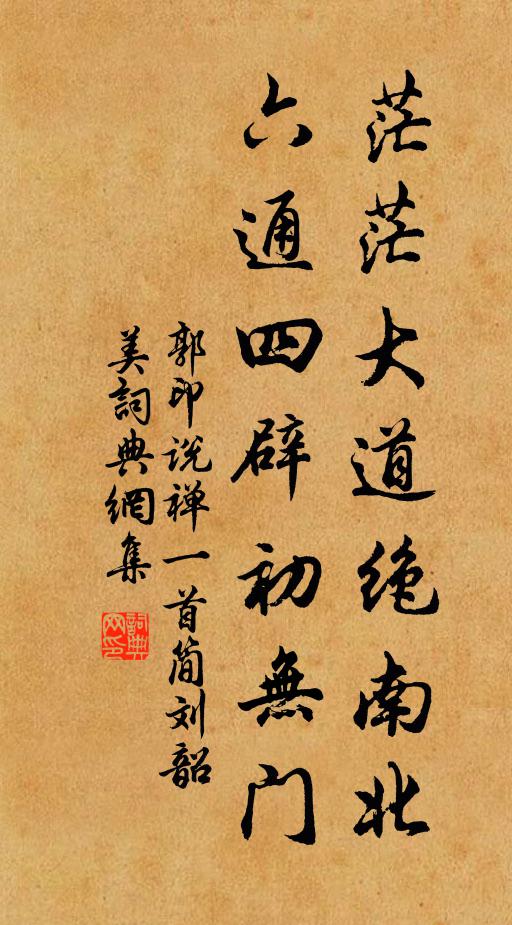 茫茫大道绝南北
六通四辟初無门
郭印说禅一首简刘韶
美詞典網集
詞典网印